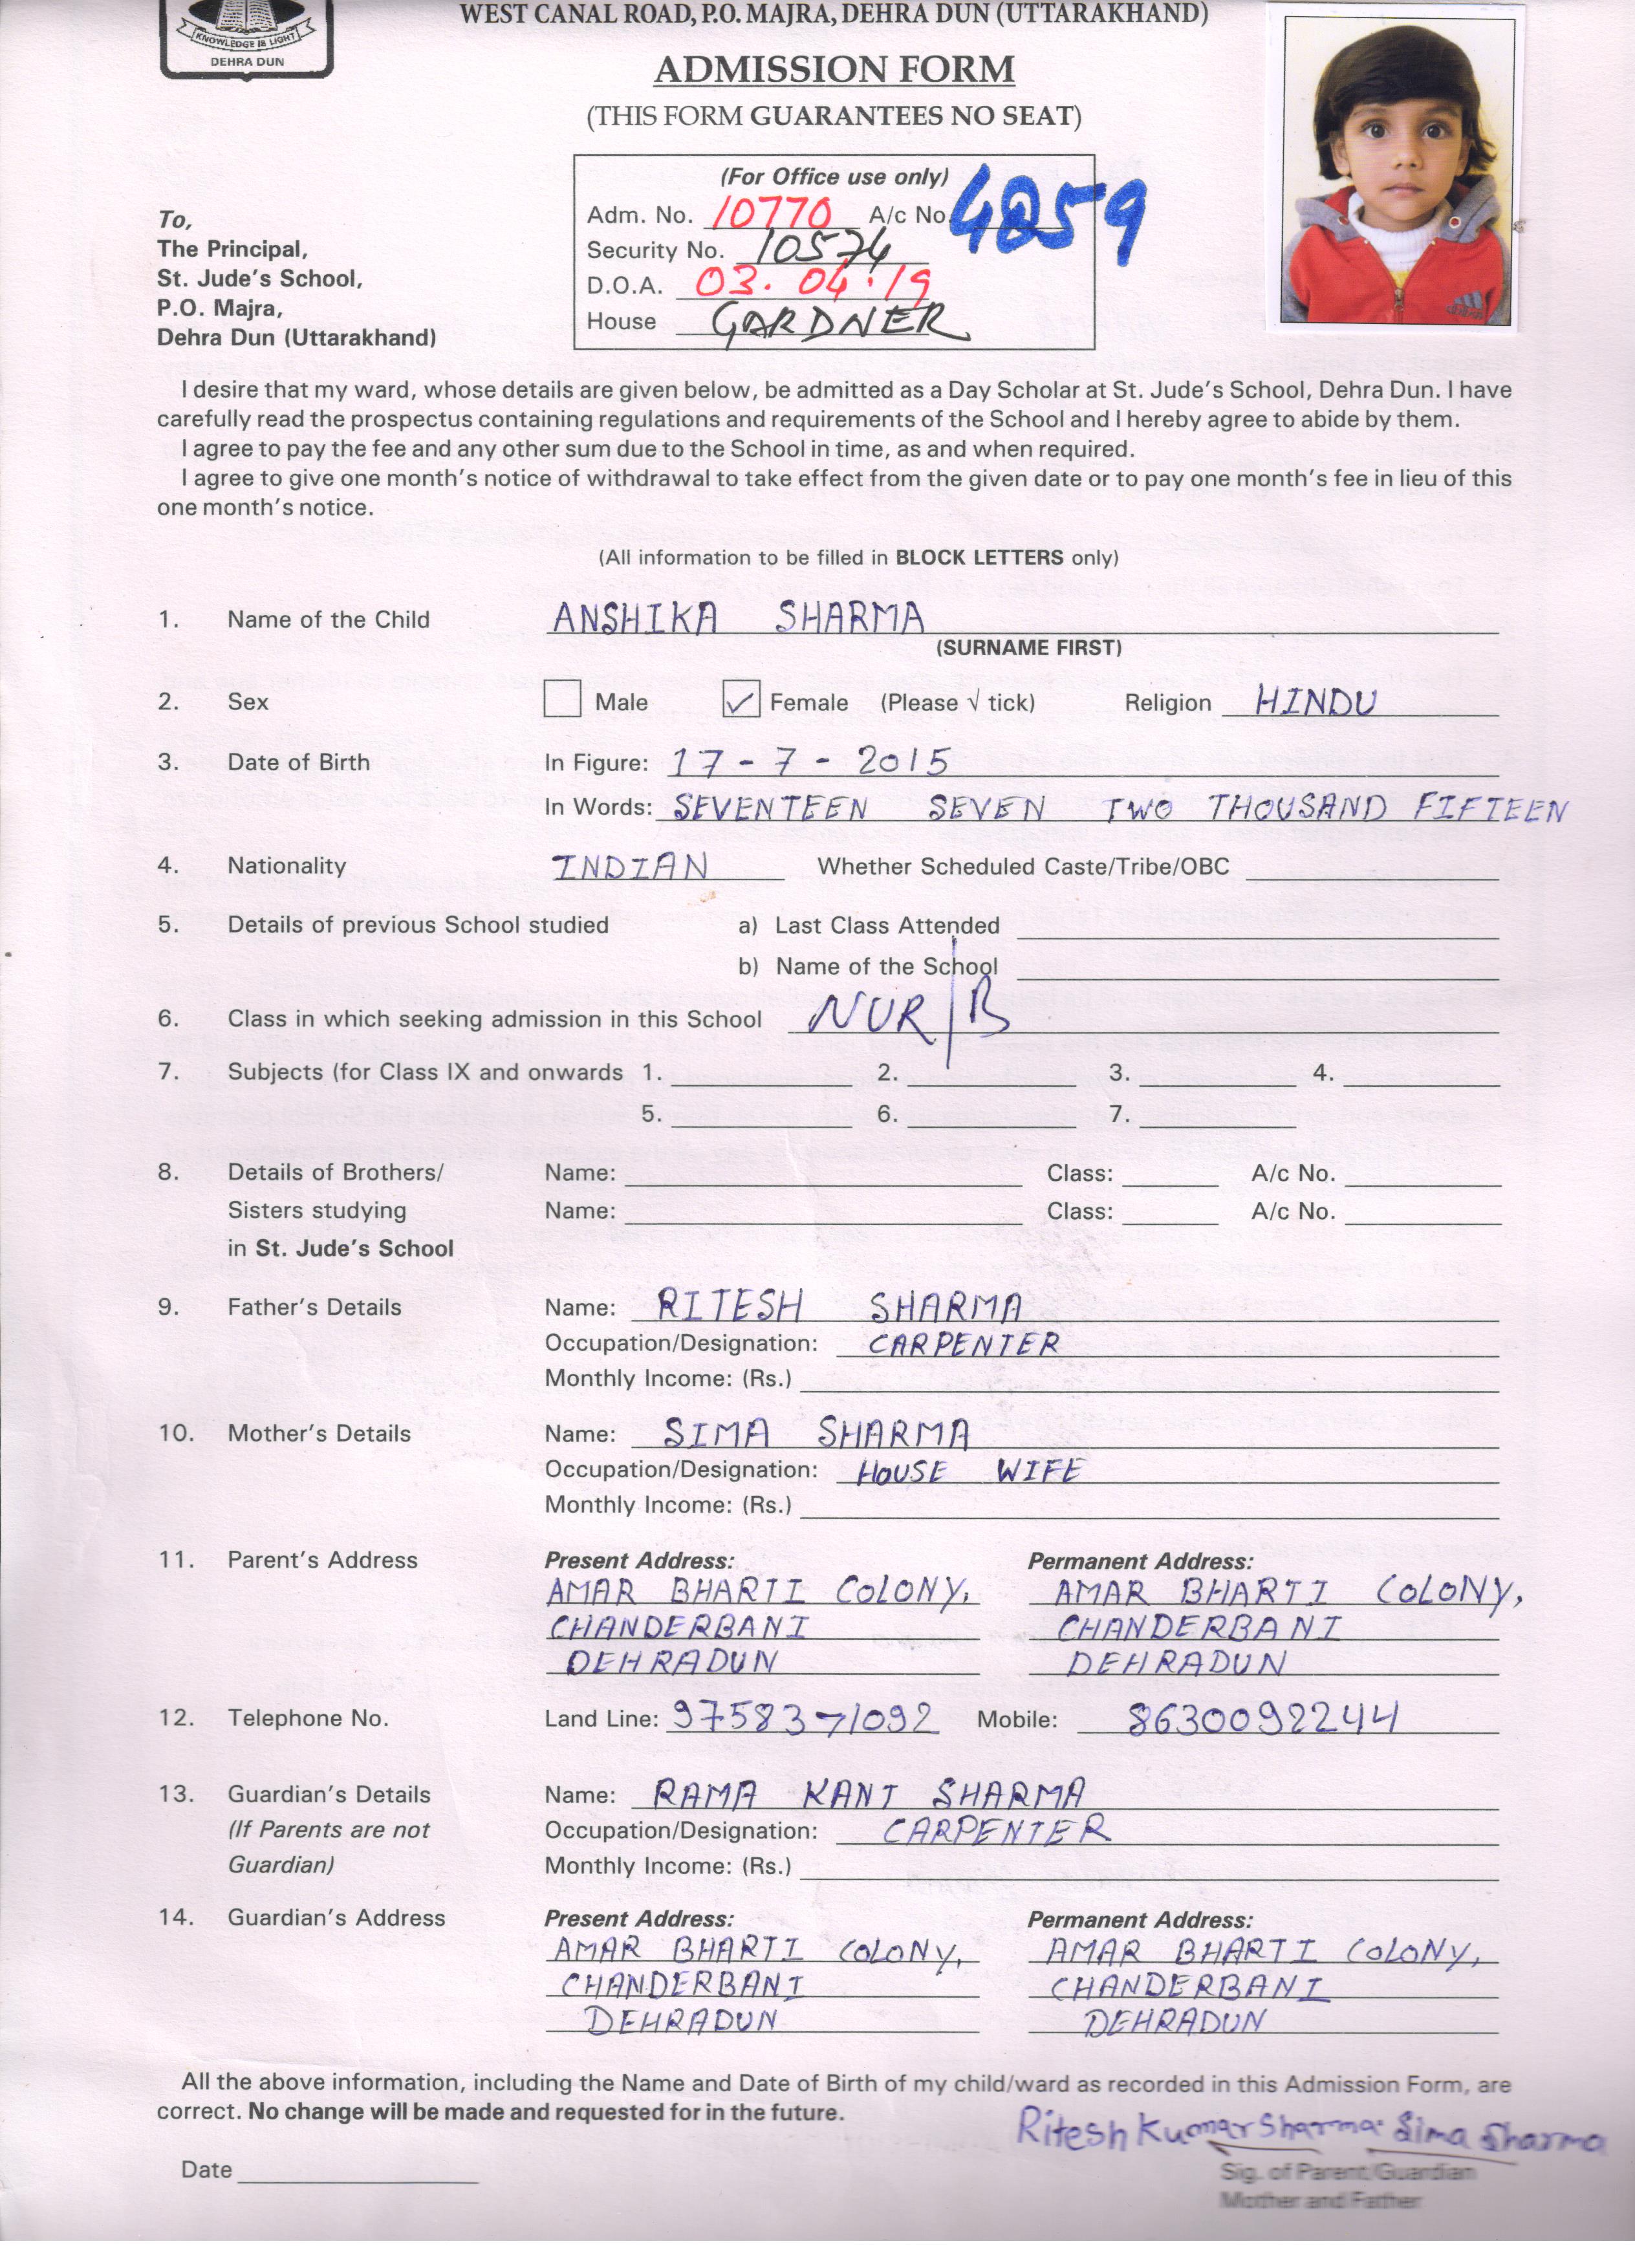 KNOWLEDGE IS LIGHT
DEHRA DUN
WEST CANAL ROAD, P.O. MAJRA, DEHRA DUN (UTTARAKHAND)
ADMISSION FORM
(THIS FORM GUARANTEES NO SEAT)
(For Office use only)
Adm. No. 10770 A/c No. 4859
Security No. 10574
D.O.A. 03.04.19
House GARDNER
To,
The Principal,
St. Jude's School,
P.O. Majra,
Dehra Dun (Uttarakhand)
I desire that my ward, whose details are given below, be admitted as a Day Scholar at St. Jude's School, Dehra Dun. I have
carefully read the prospectus containing regulations and requirements of the School and I hereby agree to abide by them.
I agree to pay the fee and any other sum due to the School in time, as and when required.
I agree to give one month's notice of withdrawal to take effect from the given date or to pay one month's fee in lieu of this
one month's notice.
(All information to be filled in BLOCK LETTERS only)
1. Name of the Child ANSHIKA SHARMA
(SURNAME FIRST)
2. Sex Male ✓ Female (Please √ tick) Religion HINDU
3. Date of Birth In Figure: 17-7-2015
In Words: SEVENTEEN SEVEN TWO THOUSAND FIFTEEN
4. Nationality INDIAN Whether Scheduled Caste/Tribe/OBC
5. Details of previous School studied a) Last Class Attended
b) Name of the School
6. Class in which seeking admission in this School NUR/B
7. Subjects (for Class IX and onwards 1. 2. 3. 4.
5. 6. 7.
8. Details of Brothers/ Name: Class: A/c No.
Sisters studying Name: Class: A/c No.
in St. Jude's School
9. Father's Details Name: RITESH SHARMA
Occupation/Designation: CARPENTER
Monthly Income: (Rs.)
10. Mother's Details Name: SIMA SHARMA
Occupation/Designation: HOUSE WIFE
Monthly Income: (Rs.)
11. Parent's Address Present Address: Permanent Address:
AMAR BHARTI COLONY, AMAR BHARTI COLONY,
CHANDERBANI CHANDERBANI
DEHRADUN DEHRADUN
12. Telephone No. Land Line: 9758371092 Mobile: 8630092244
13. Guardian's Details Name: RAMA KANT SHARMA
(If Parents are not Occupation/Designation: CARPENTER
Guardian) Monthly Income: (Rs.)
14. Guardian's Address Present Address: Permanent Address:
AMAR BHARTI COLONY, AMAR BHARTI COLONY,
CHANDERBANI CHANDERBANI
DEHRADUN DEHRADUN
All the above information, including the Name and Date of Birth of my child/ward as recorded in this Admission Form, are
correct. No change will be made and requested for in the future.
Ritesh Kumar Sharma Sima Sharma
Date Sig. of Parent/Guardian
Mother and Father